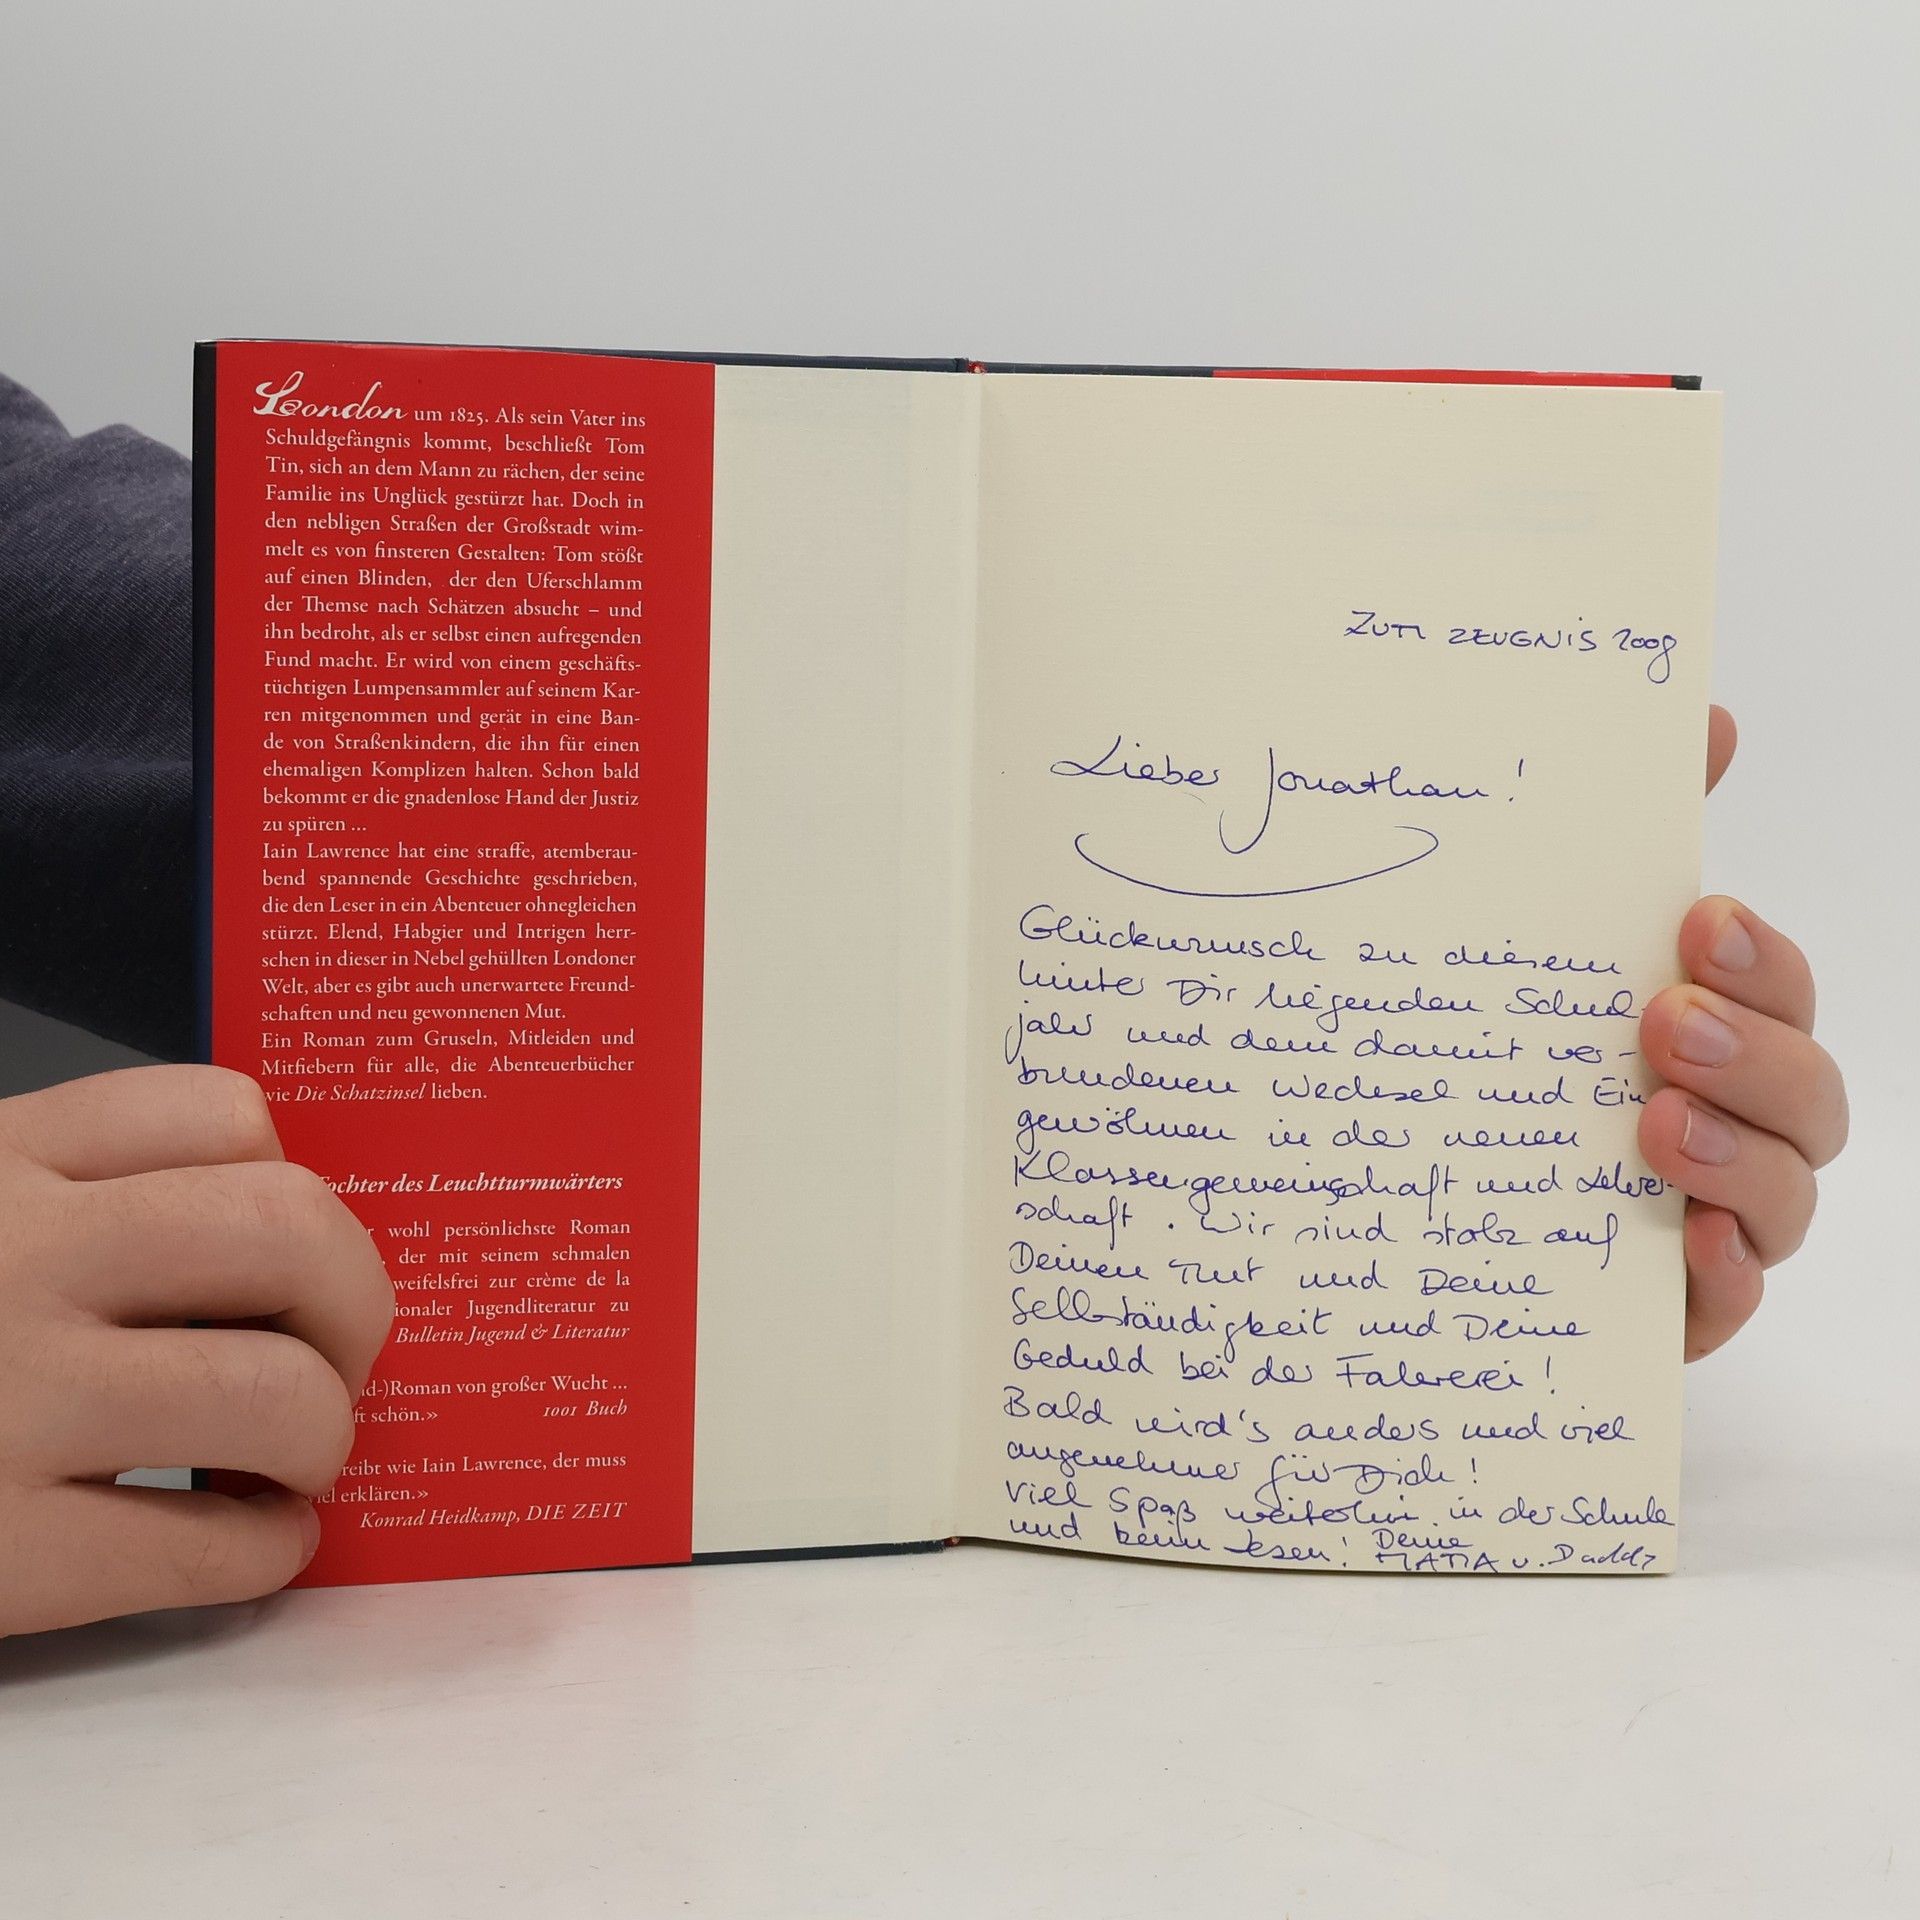 London um 1825. Als sein Vater ins
Schuldgefängnis kommt, beschließt Tom
Tin, sich an dem Mann zu rächen, der seine
Familie ins Unglück gestürzt hat. Doch in
den nebligen Straßen der Großstadt wim-
melt es von finsteren Gestalten: Tom stößt
auf einen Blinden, der den Uferschlamm
der Themse nach Schätzen absucht – und
ihn bedroht, als er selbst einen aufregenden
Fund macht. Er wird von einem geschäfts-
tüchtigen Lumpensammler auf seinem Kar-
ren mitgenommen und gerät in eine Ban-
de von Straßenkindern, die ihn für einen
ehemaligen Komplizen halten. Schon bald
bekommt er die gnadenlose Hand der Justiz
zu spüren ...
Iain Lawrence hat eine straffe, atemberau-
bend spannende Geschichte geschrieben,
die den Leser in ein Abenteuer ohnegleichen
stürzt. Elend, Habgier und Intrigen herr-
schen in dieser in Nebel gehüllten Londoner
Welt, aber es gibt auch unerwartete Freund-
schaften und neu gewonnenen Mut.
Ein Roman zum Gruseln, Mitleiden und
Mitfiebern für alle, die Abenteuerbücher
wie Die Schatzinsel lieben.
Tochter des Leuchtturmwärters
wohl persönlichste Roman
der mit seinem schmalen
weifelsfrei zur crème de la
ionaler Jugendliteratur zu
Bulletin Jugend & Literatur
d-)Roman von großer Wucht ...
ft schön.» 1001 Buch
reibt wie Iain Lawrence, der muss
viel erklären.»
Konrad Heidkamp, DIE ZEIT
ZUM ZEUGNIS 2008
Lieber Jonathan!
Glückwunsch zu diesem
hinter Dir liegenden Schul-
jahr und dem damit ver-
bundenen Wechsel und Ein
gewöhnen in der neuen
Klassengemeinschaft und Lehrer-
schaft. Wir sind stolz auf
Deinen Mut und Deine
Selbständigkeit und Deine
Geduld bei der Fahrerei!
Bald wird's anders und viel
angenehmer für Dich!
Viel Spaß weiterhin in der Schule
und beim Lesen! Deine
MAMA u. Daddy